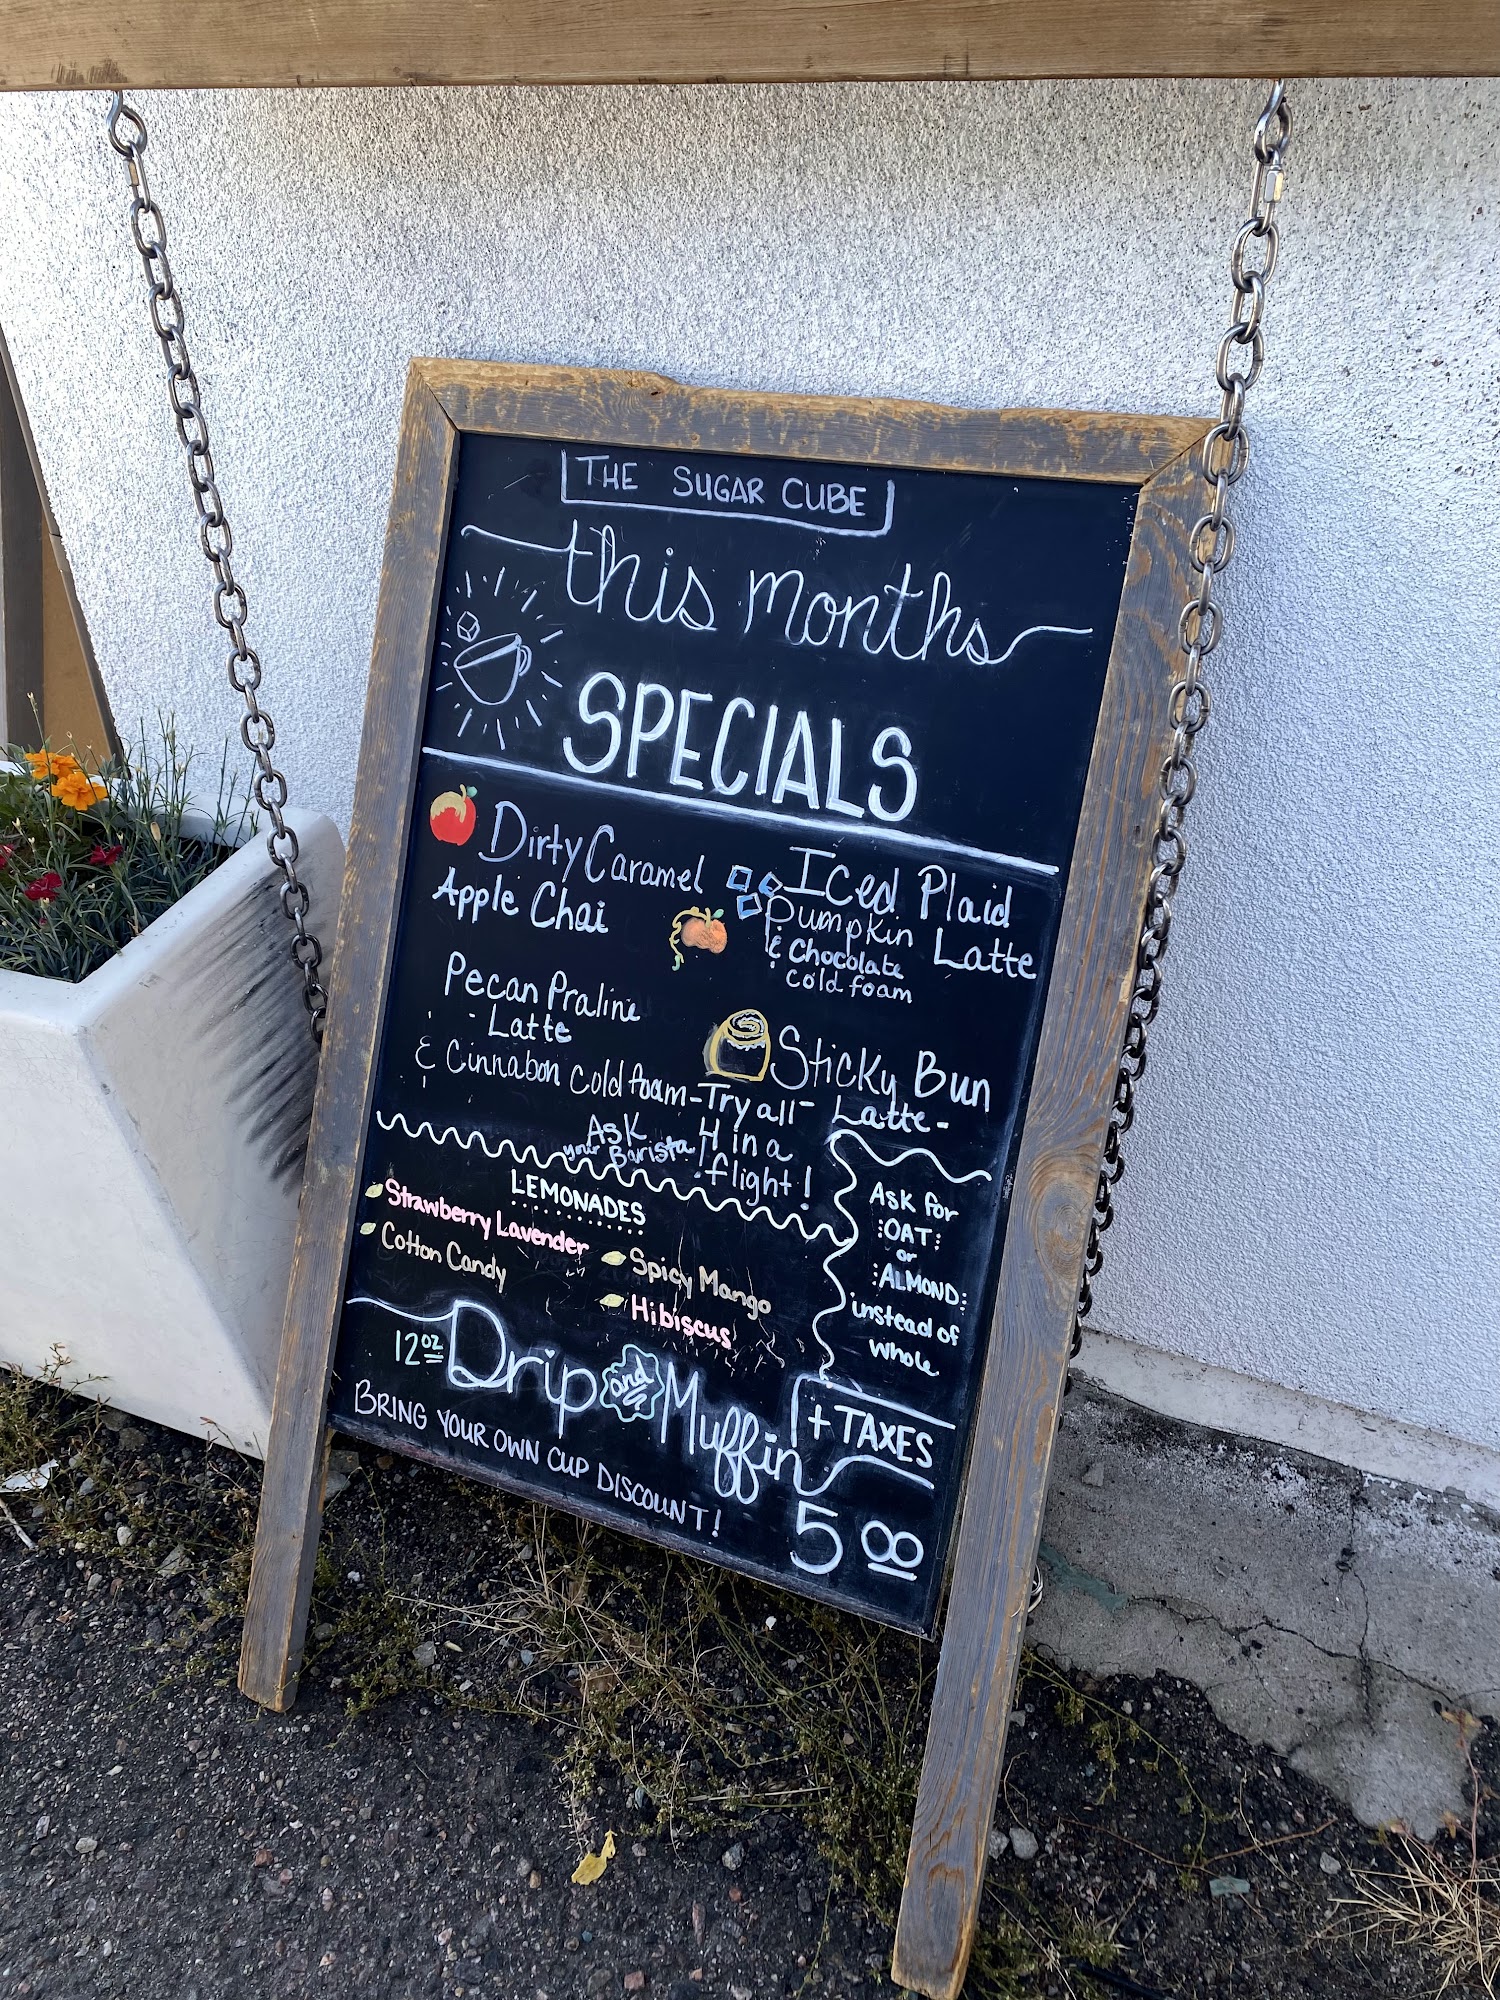 THE SUGAR CUBE
this months
SPECIALS
Dirty Caramel
Apple Chai
Iced Plaid
Pumpkin Latte
& Chocolate
cold foam
Pecan Praline
- Latte
& Cinnabon cold foam
Sticky Bun
Latte -
- Try all -
4 in a
flight!
Ask
your Barista
LEMONADES
Strawberry Lavender
Cotton Candy
Spicy Mango
Hibiscus
Ask for
:OAT:
or
:ALMOND:
instead of
whole
12oz Drip and Muffin
+ TAXES
5 00
BRING YOUR OWN CUP DISCOUNT!